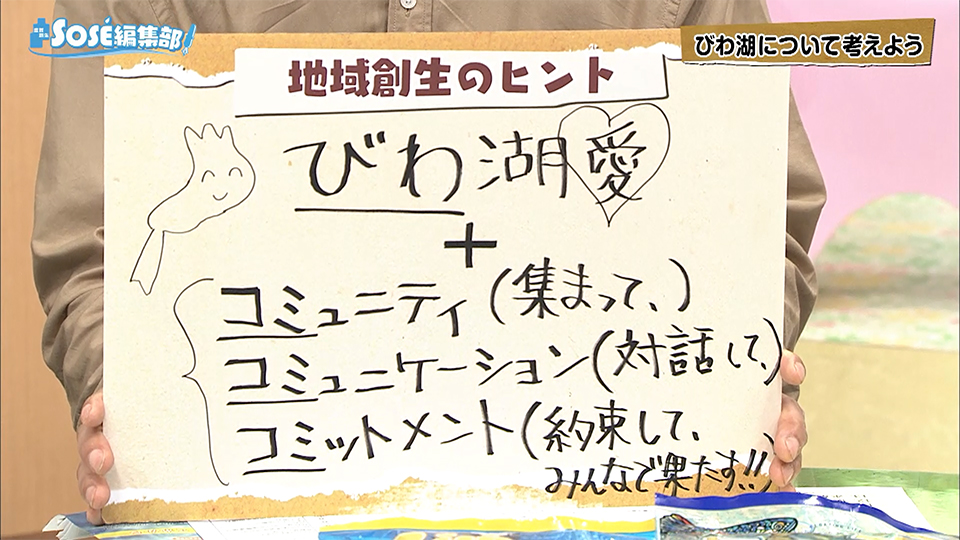 SOSÉ編集部
びわ湖について考えよう
地域創生のヒント
びわ湖愛
+
コミュニティ(集まって、)
コミュニケーション(対話して、)
コミットメント(約束して、
みんなで果たす!!)